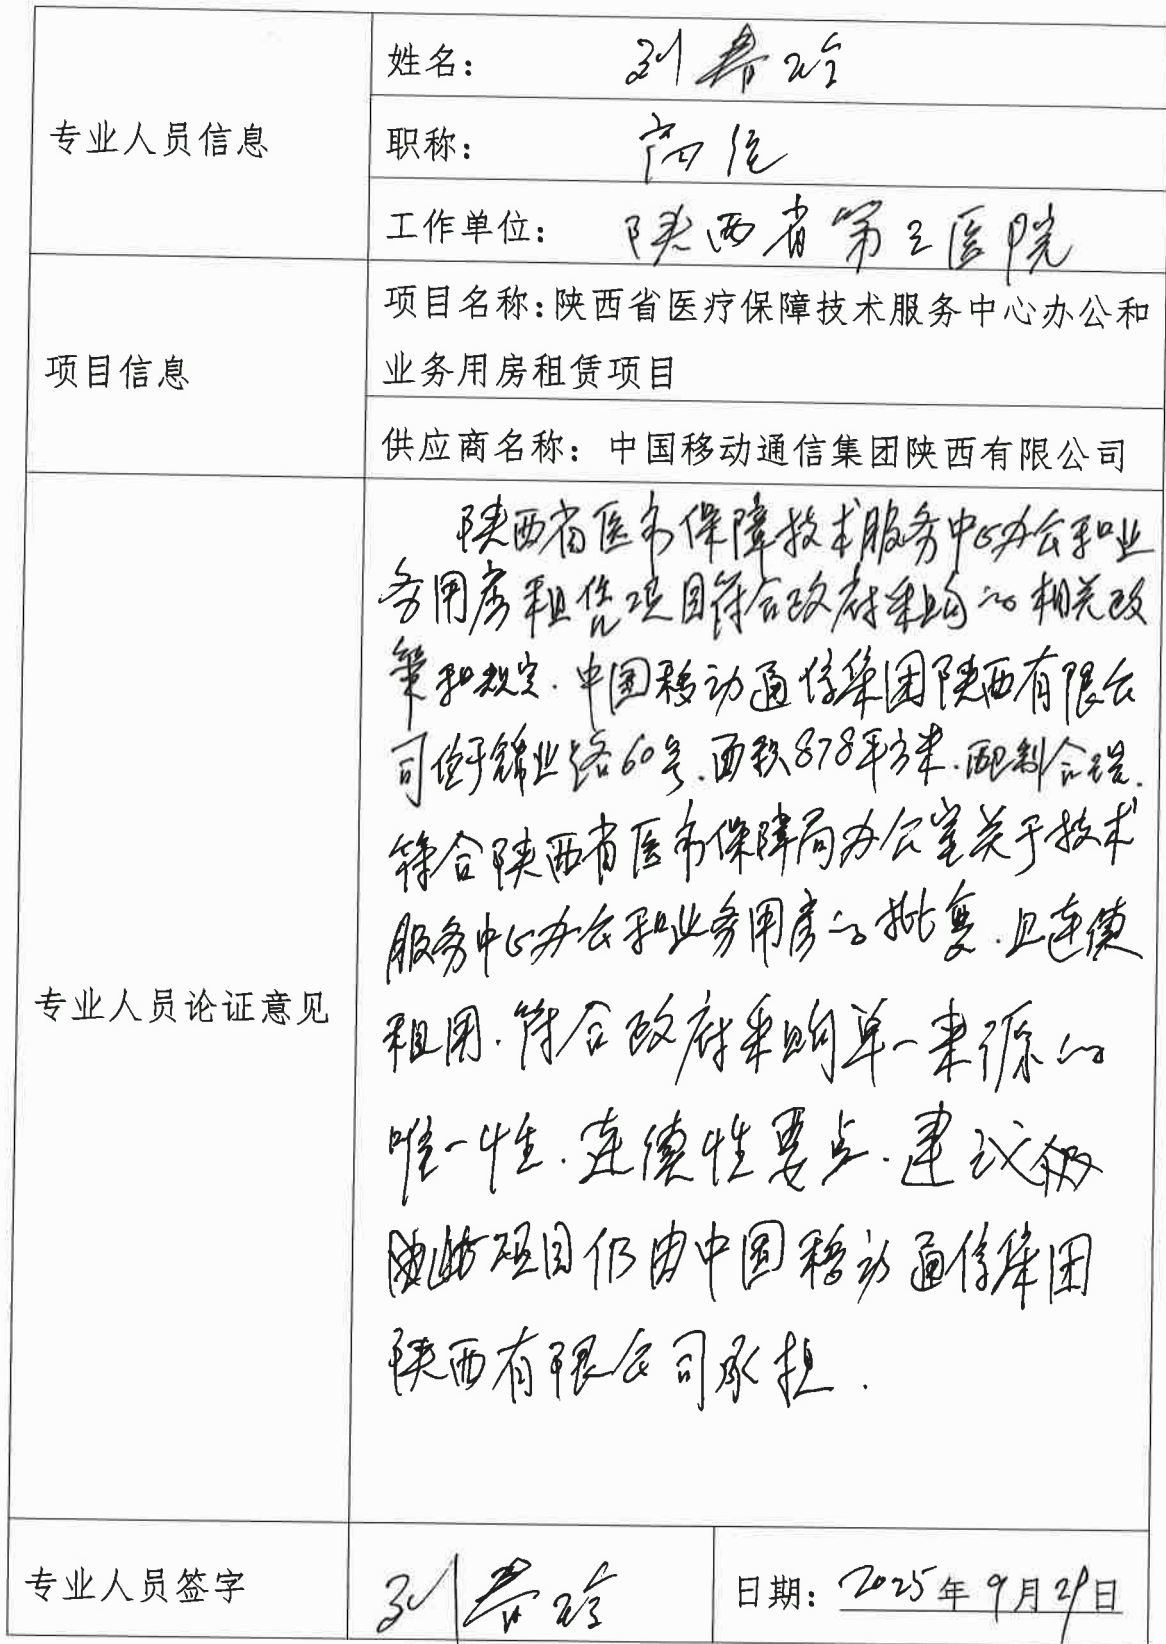 专业人员信息
姓名： 刘春玲
职称： 高经
工作单位： 陕西省第三医院
项目信息
项目名称：陕西省医疗保障技术服务中心办公和
业务用房租赁项目
供应商名称：中国移动通信集团陕西有限公司
专业人员论证意见
陕西省医疗保障技术服务中心办公和业
务用房租赁项目符合政府采购的相关政
策和规定.中国移动通信集团陕西有限公
司位于锦业路60号.面积878平方米.配制合理.
符合陕西省医疗保障局办公室关于技术
服务中心办公和业务用房的批复.且连续
租用.符合政府采购单一来源的
唯一性.连续性要点.建议
项目仍由中国移动通信集团
陕西有限公司承担.
专业人员签字
刘春玲
日期：2025年9月29日